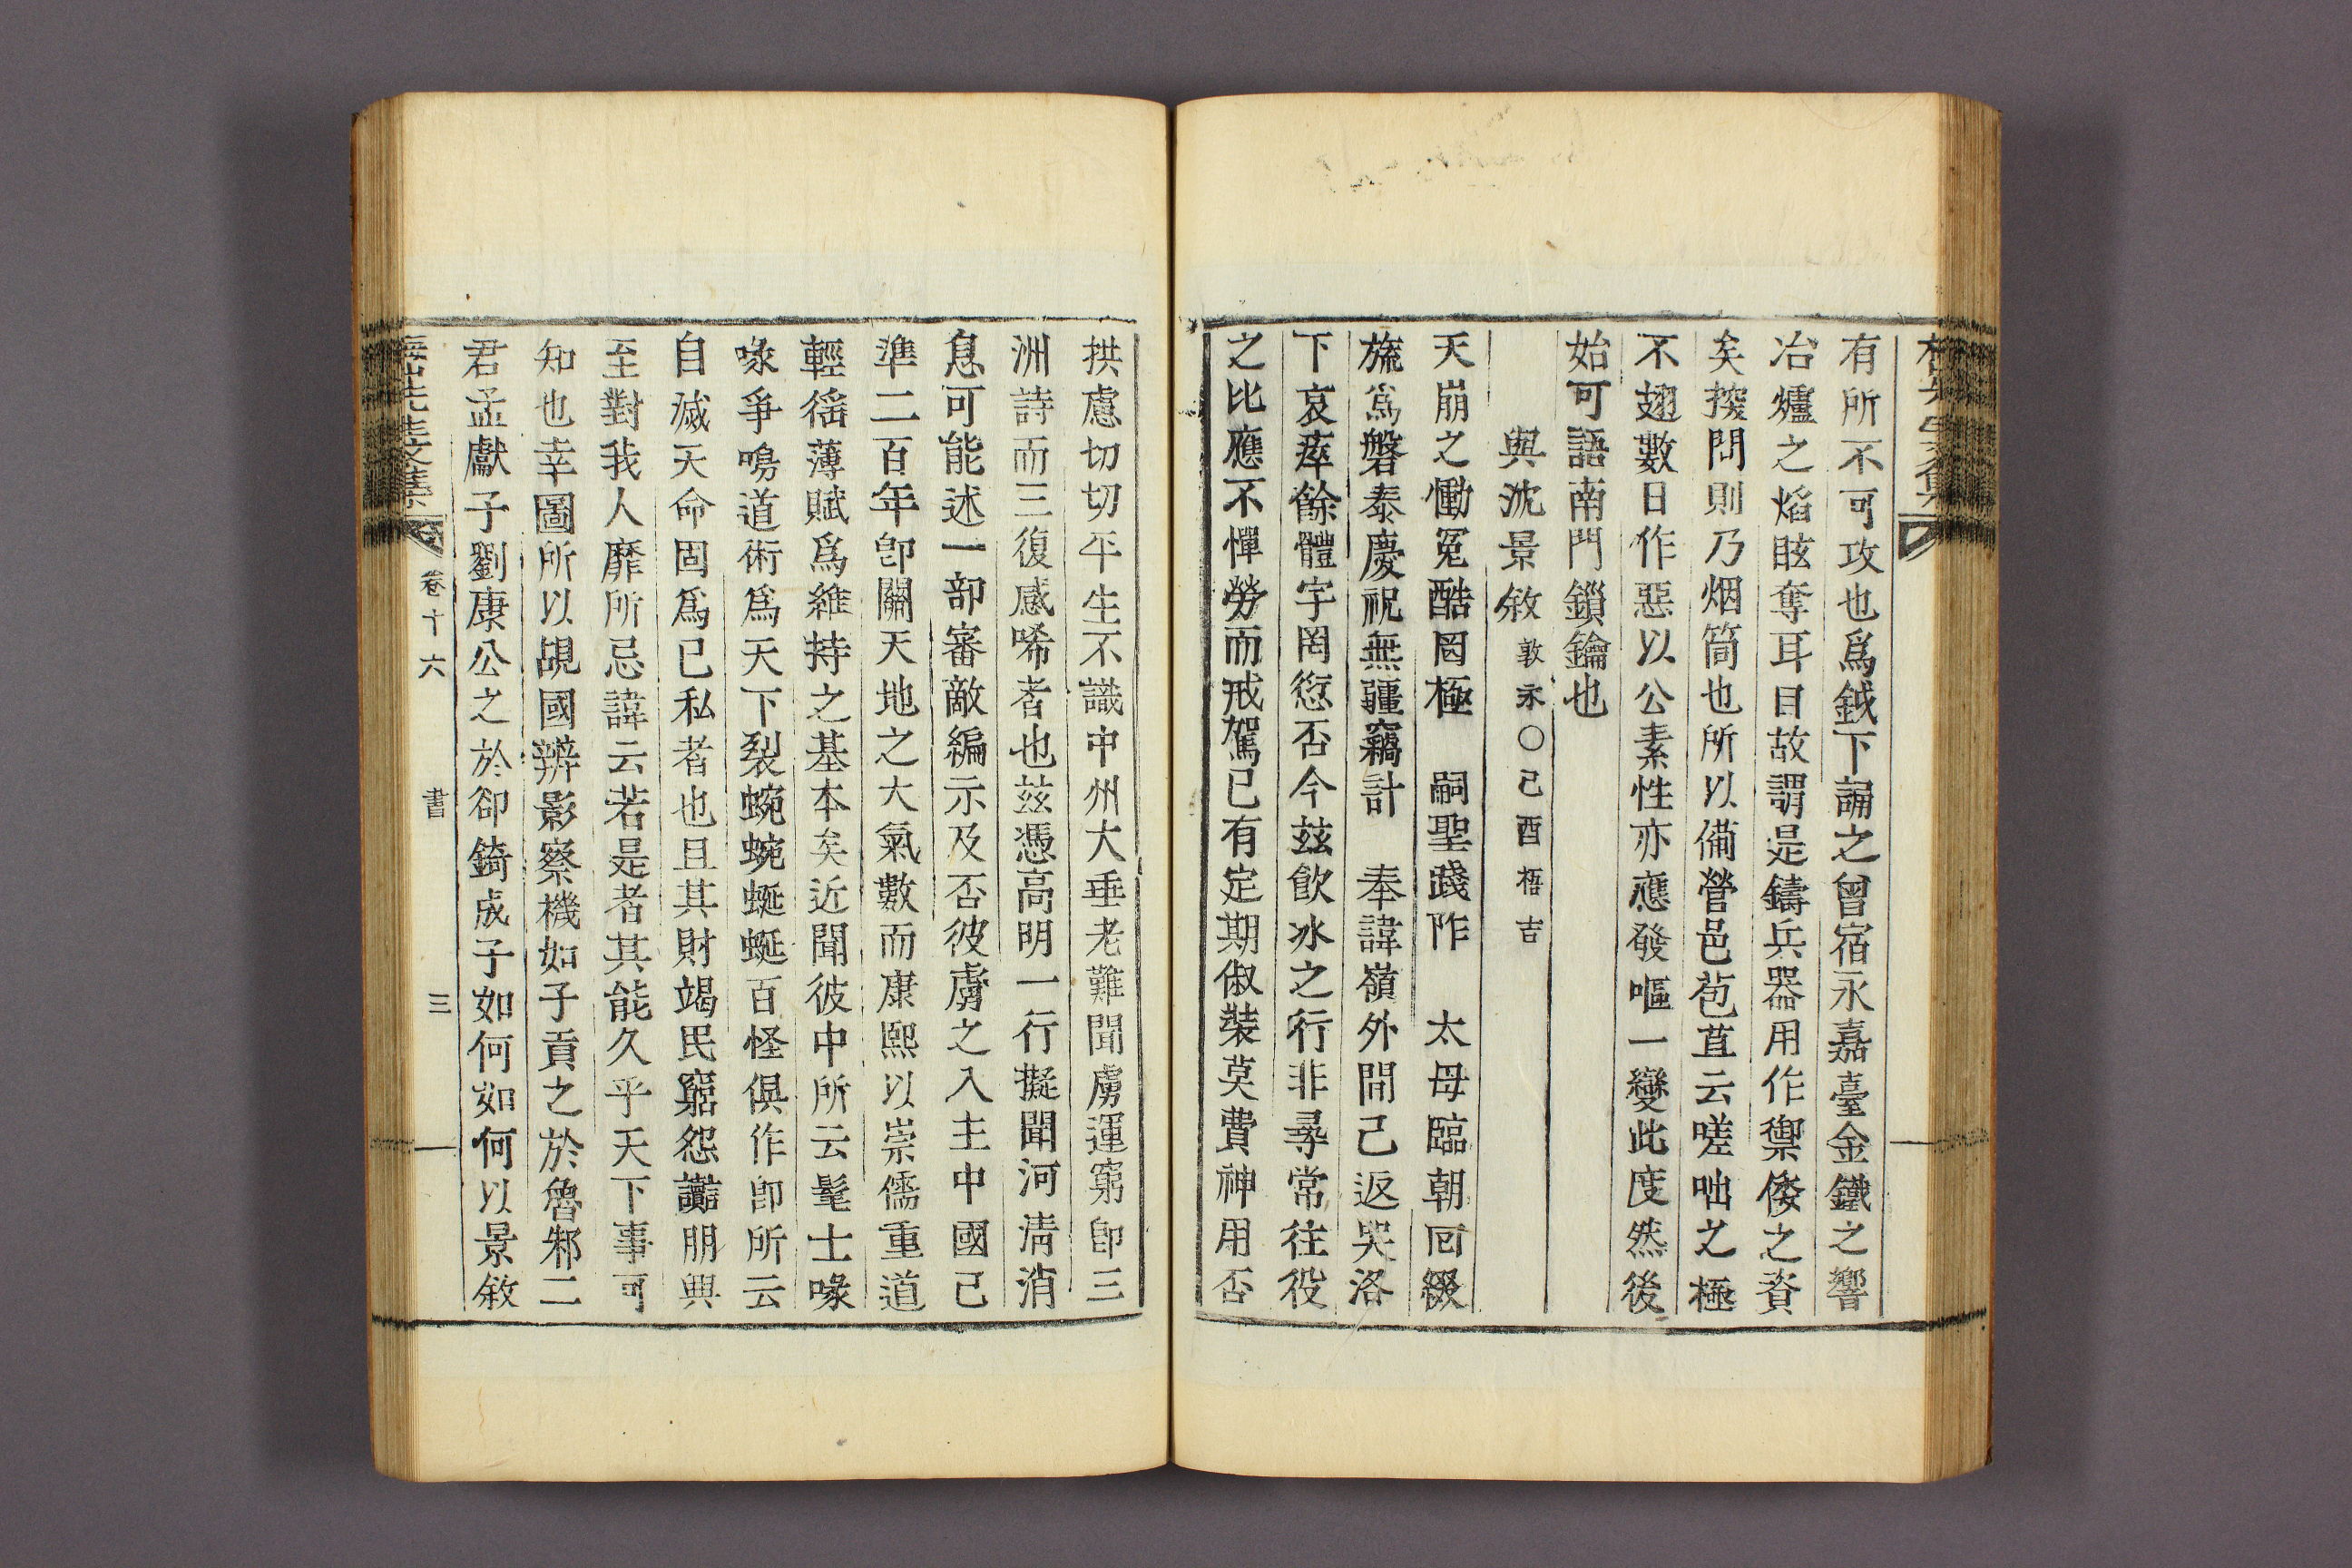 有所不可攻也爲鉞下誦之曾宿永嘉臺金鐵之響
冶爐之焰眩奪耳目故謂是鑄兵器用作禦倭之資
矣搜問則乃烟筒也所以備營邑苞苴云嗟咄之極
不翅數日作惡以公素性亦應發嘔一變此度然後
始可語南門鎖鑰也
與沈景敘敦永○己酉梧吉
天崩之慟冤酷罔極 嗣聖踐阼 太母臨朝回綴
旒爲磐泰慶祝無疆竊計 奉諱嶺外間已返哭洛
下哀瘁餘體宇罔愆否今玆飮冰之行非尋常往役
之比應不憚勞而戒駕已有定期俶裝莫費神用否
拱慮切切平生不識中州大垂老難聞虜運窮卽三
洲詩而三復感唏者也玆憑高明一行擬聞河淸消
息可能述一部審敵編示及否彼虜之入主中國已
準二百年卽關天地之大氣數而康熙以崇儒重道
輕徭薄賦爲維持之基本矣近聞彼中所云髦士喙
喙爭鳴道術爲天下裂蜿蜿蜒蜒百怪俱作卽所云
自滅天命固爲已私者也且其財竭民窮怨讟朋興
至對我人靡所忌諱云若是者其能久乎天下事可
知也幸圖所以覘國辨影察機如子貢之於魯邾二
君孟獻子劉康公之於郤錡成子如何如何以景敘
卷十六 書 三